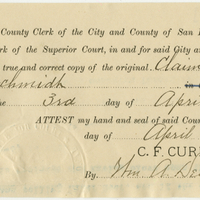 County Clerk of the City and County of San
rk of the Superior Court, in and for said City a
true and correct copy of the original. Claim
chmidt
e 3rd day of April
ATTEST my hand and seal of said Cou
day of April
C. F. CUR
By. Wm A. De